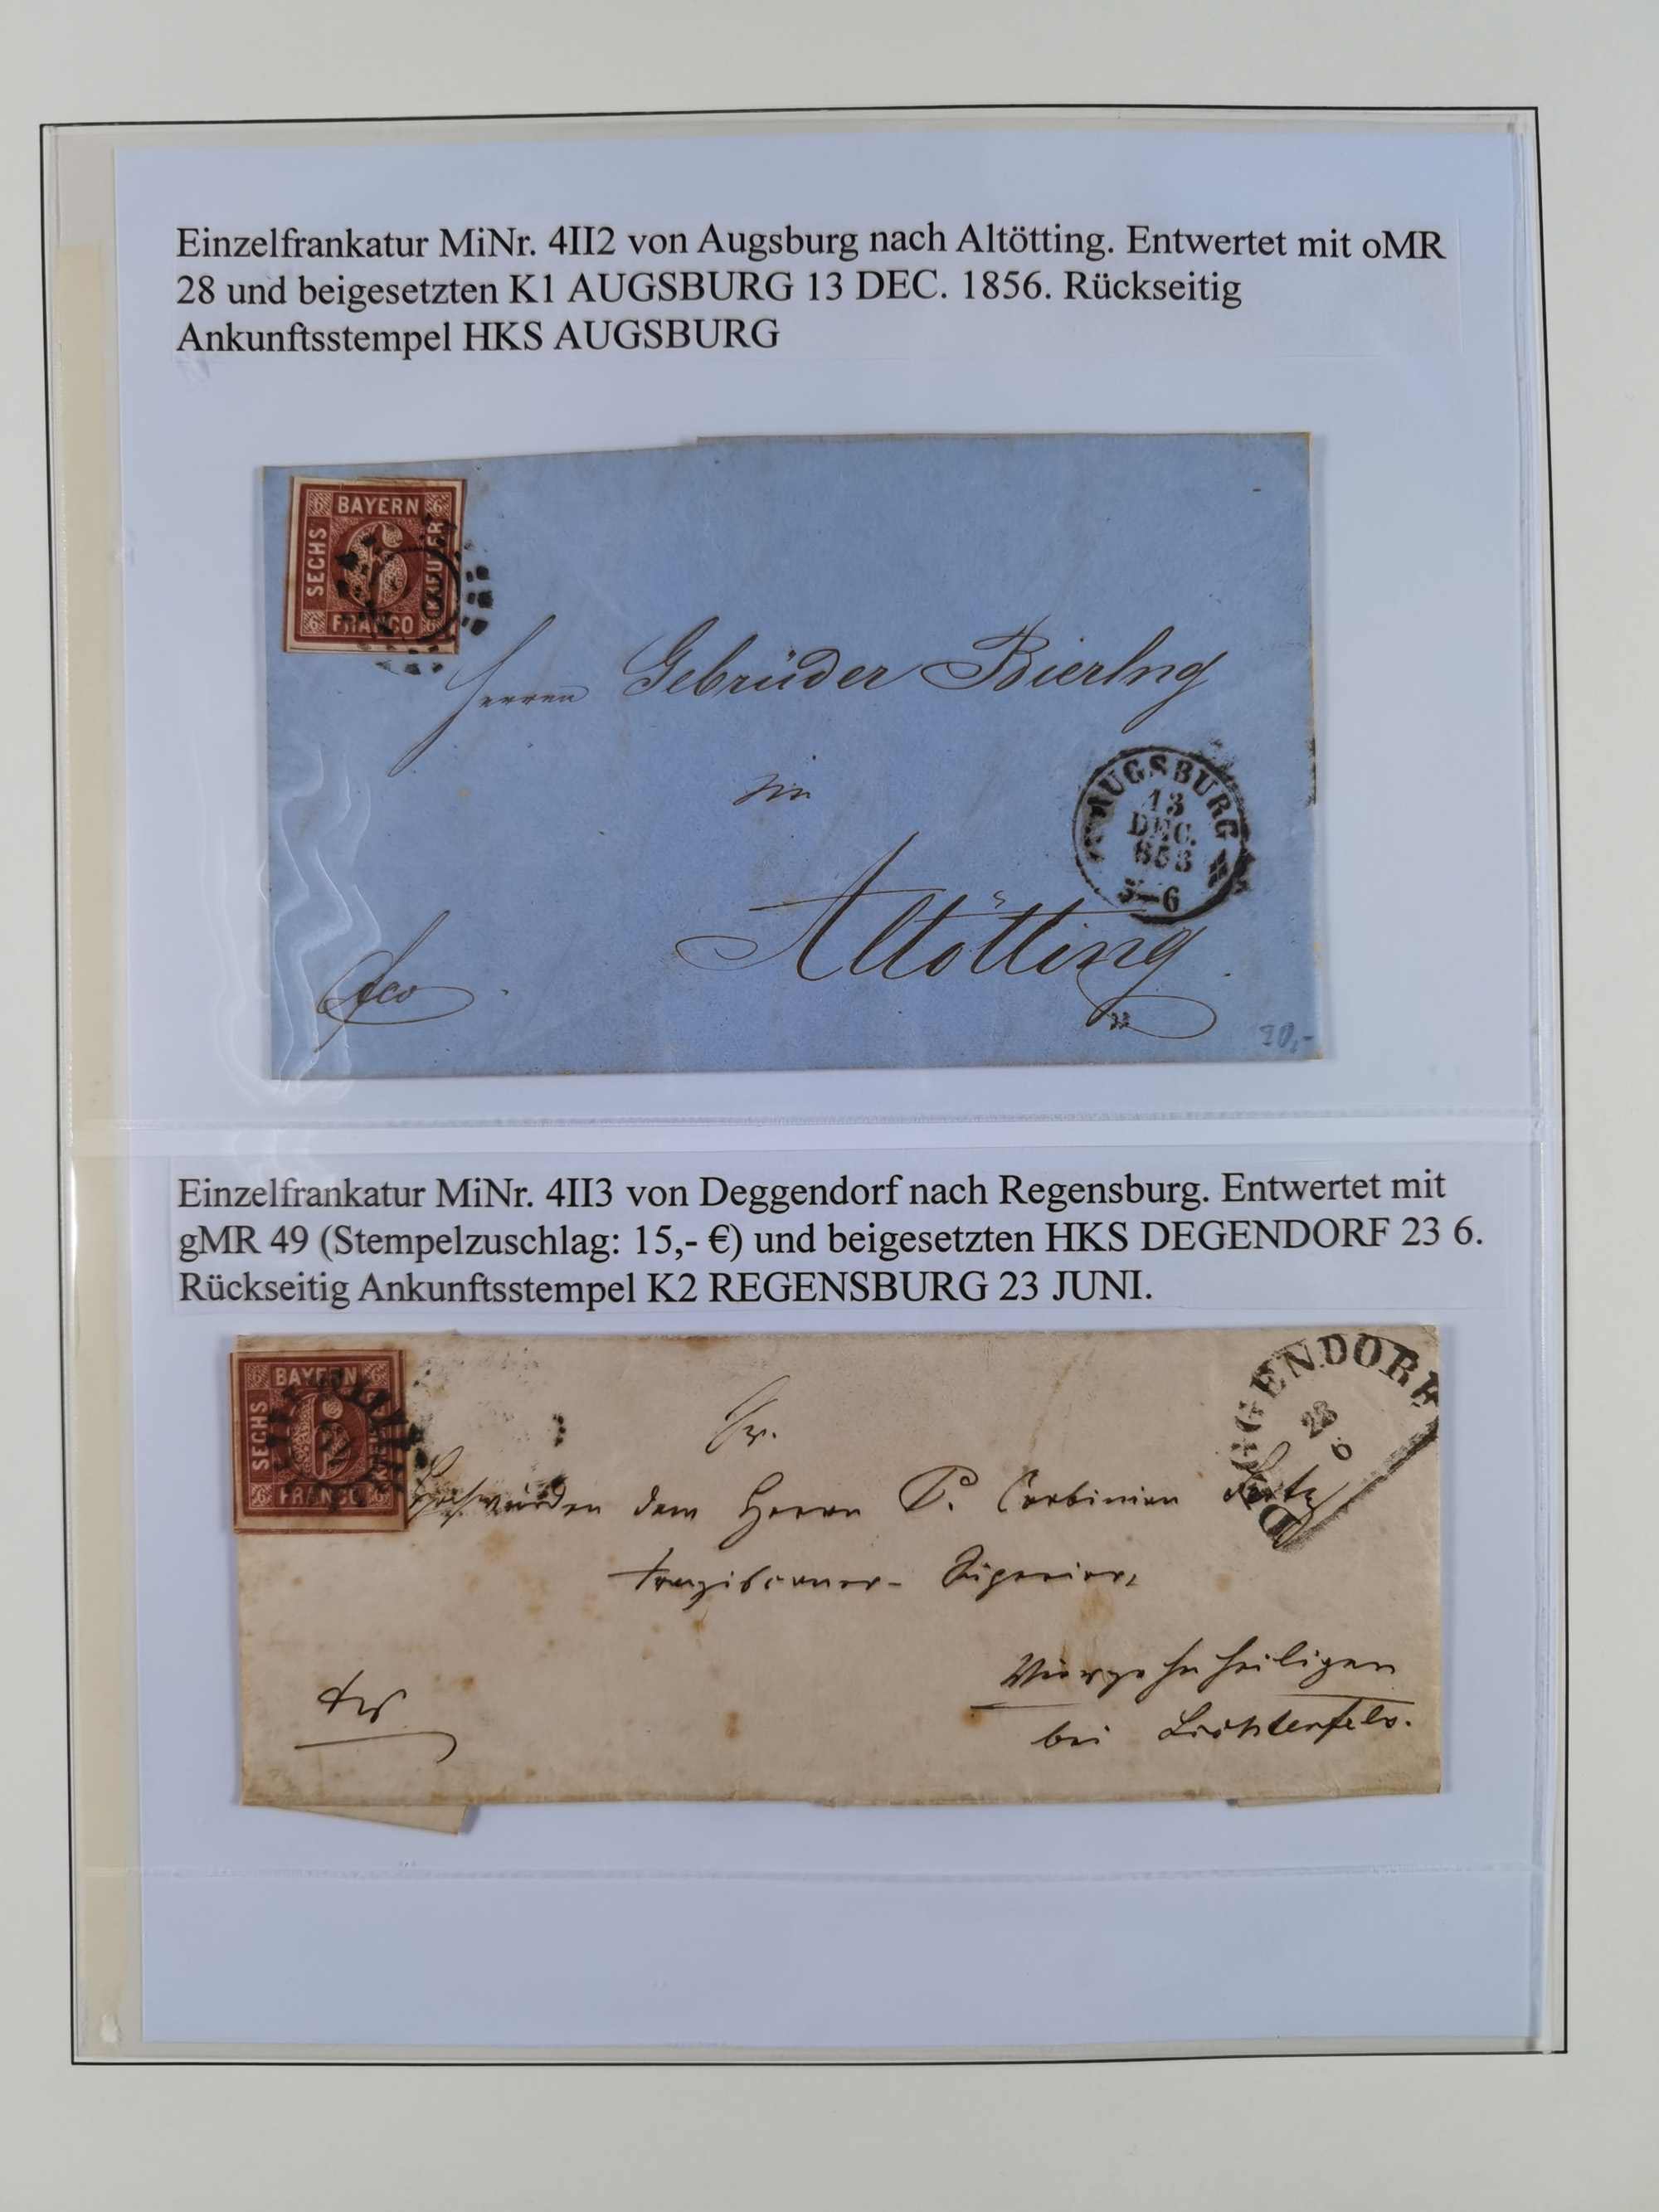 Einzelfrankatur MiNr. 4II2 von Augsburg nach Altötting. Entwertet mit oMR
28 und beigesetzten K1 AUGSBURG 13 DEC. 1856. Rückseitig
Ankunftsstempel HKS AUGSBURG
BAYERN
SECHS
KREUZER
FRANCO
6 6 6 6
Herren Gebrüder Bierlng
in
AUGSBURG
13
DEC.
5-6
Altötting
fco
Einzelfrankatur MiNr. 4II3 von Deggendorf nach Regensburg. Entwertet mit
gMR 49 (Stempelzuschlag: 15,- €) und beigesetzten HKS DEGENDORF 23 6.
Rückseitig Ankunftsstempel K2 REGENSBURG 23 JUNI.
BAYERN
SECHS
FRANCO
DEGGENDORF
23
6
Sr.
Hochwürden dem Herrn P. Corbinian
Franziscaner-
Vierzehnheiligen
bei Lichtenfels.